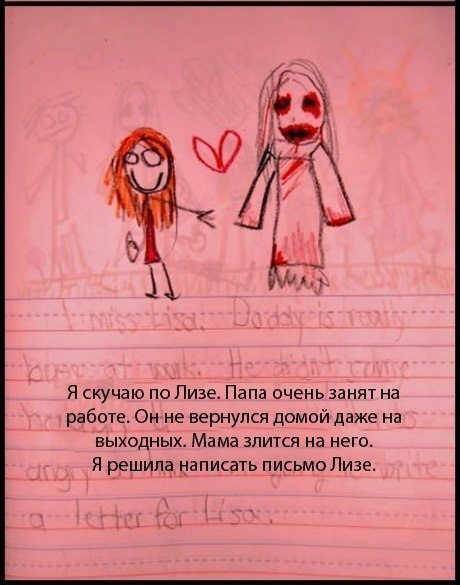 I miss Lisa. Daddy is really
at work. He didn't come
Я скучаю по Лизе. Папа очень занят на
работе. Он не вернулся домой даже на
выходных. Мама злится на него.
Я решила написать письмо Лизе.
angry write
a letter for Lisa.